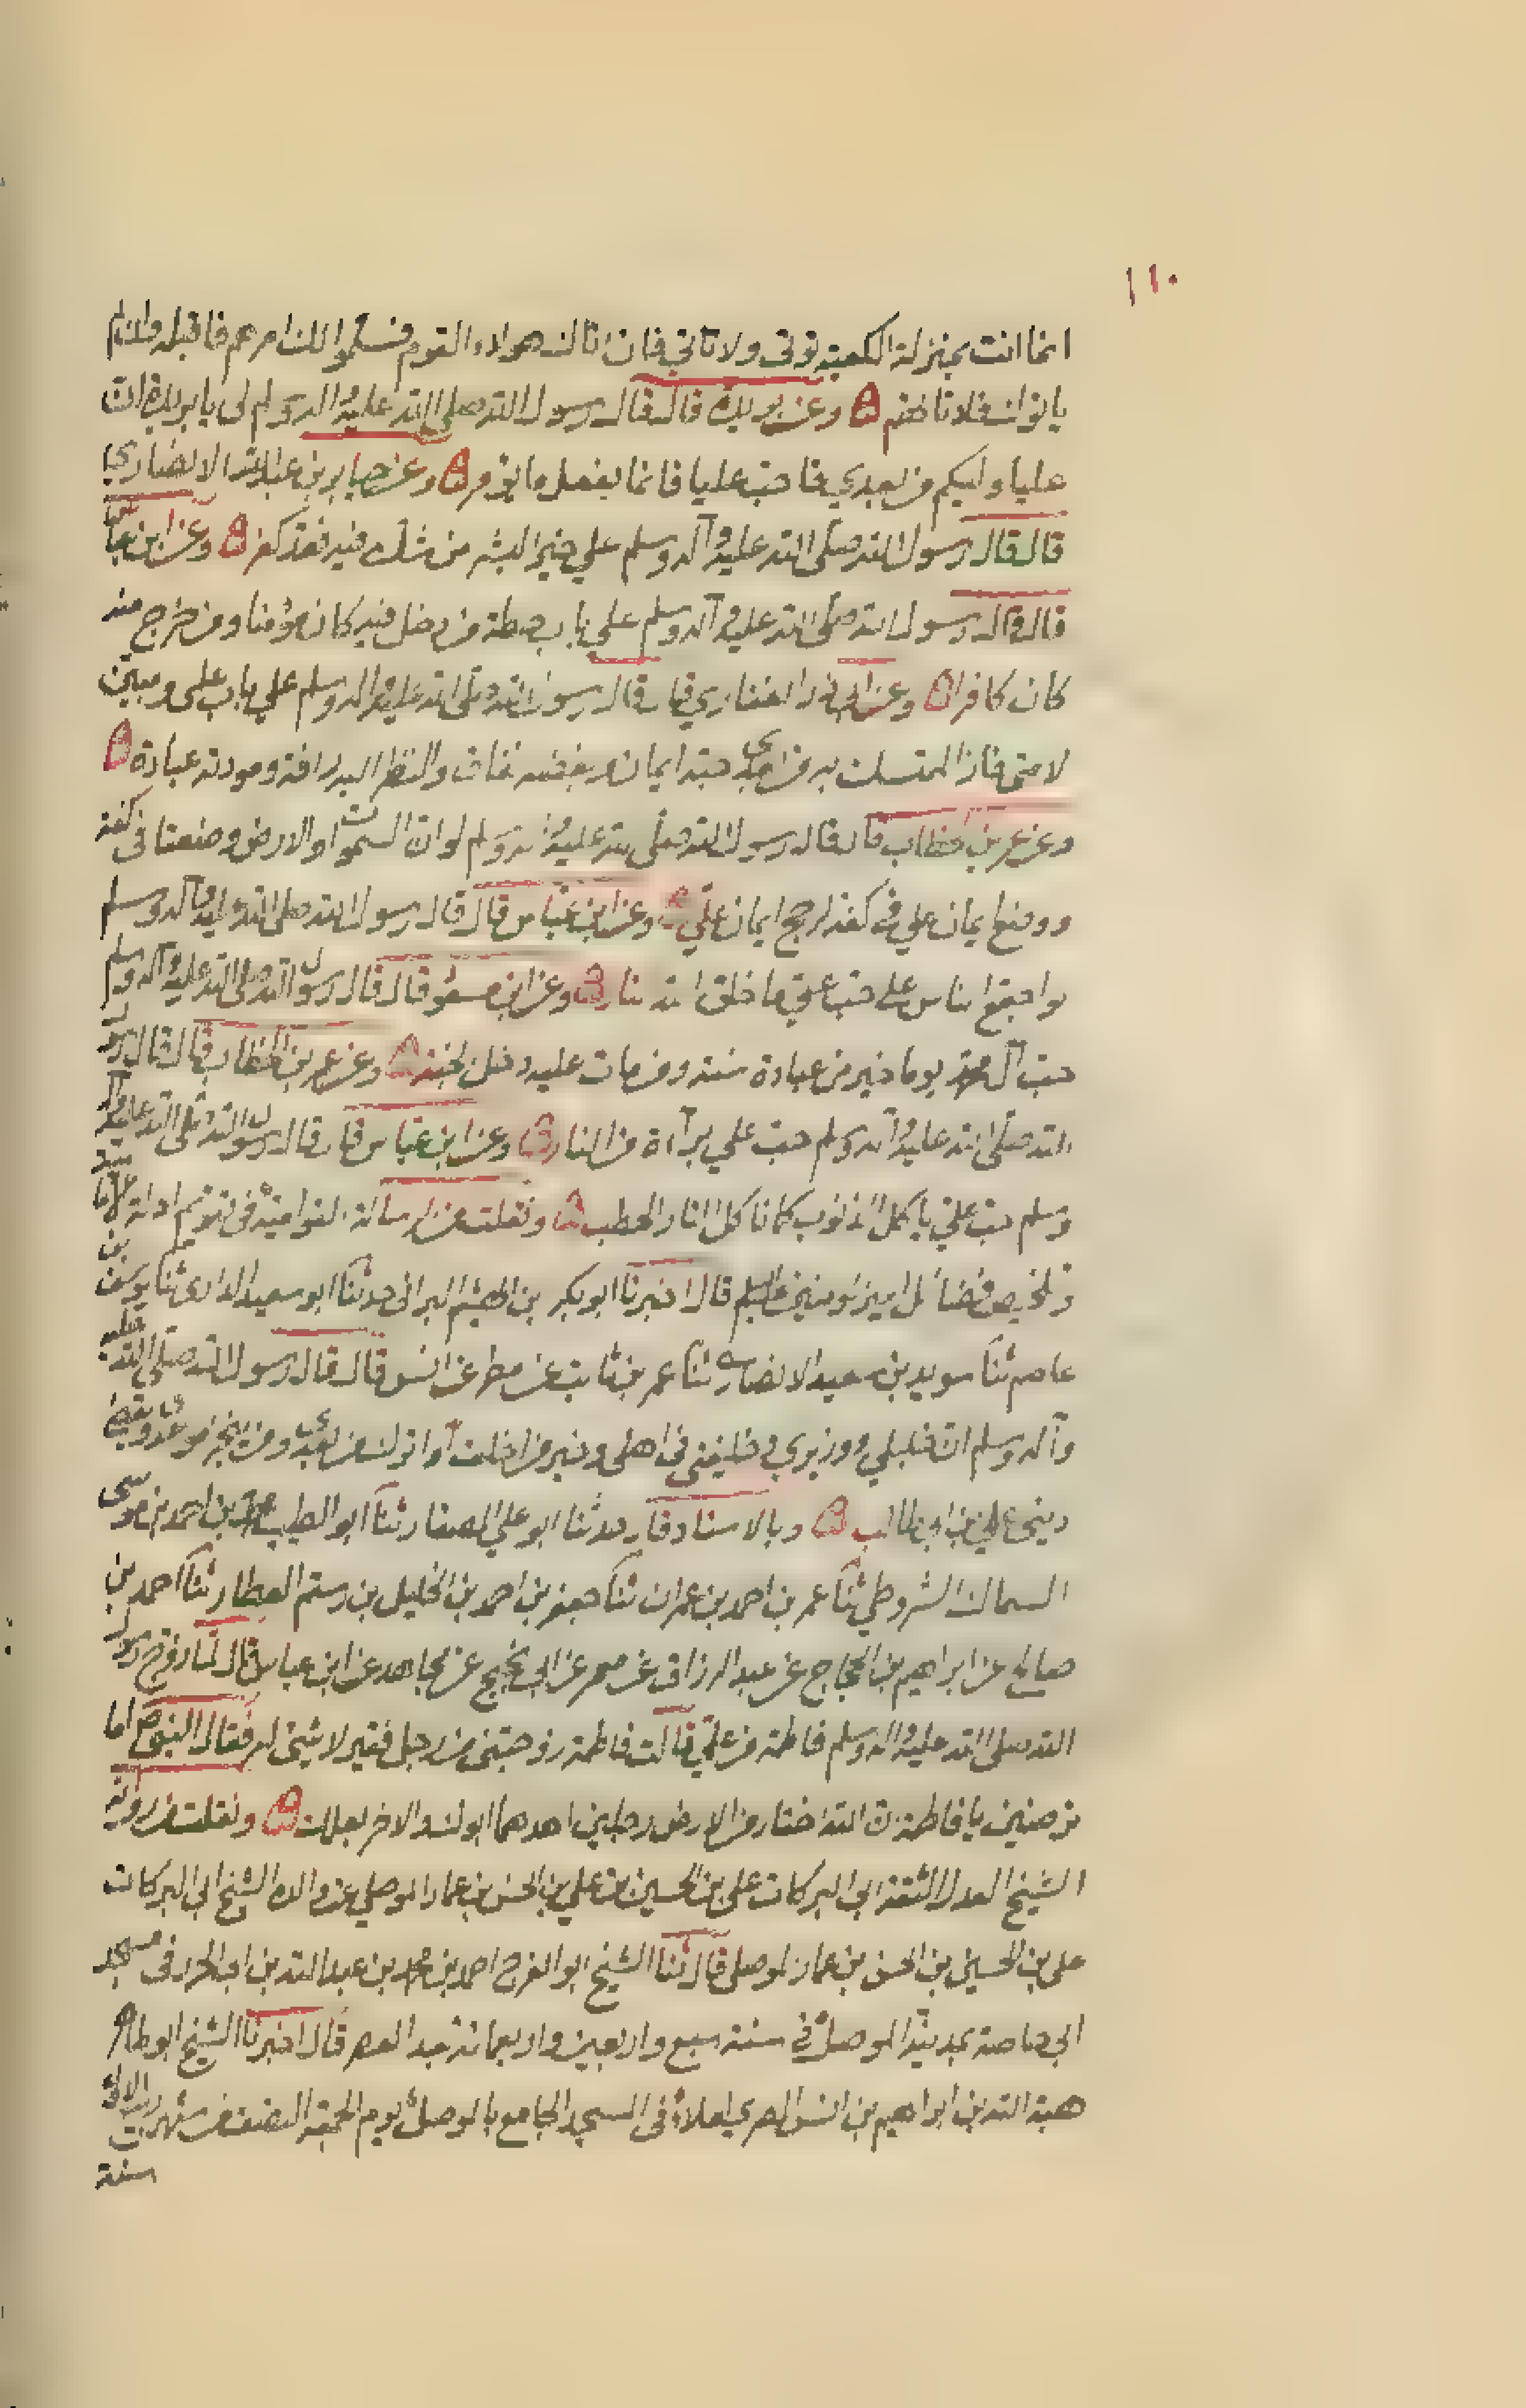 ١١٠
انما انت بمنزلة الكعبة توتى ولا تاتي فان اتاك هولاء القوم فسلموا لك امرهم فاقبله وان لم
ياتوك فلا تاتهم وعن بريدة قال قال رسول الله صلى الله عليه واله وسلم لي يا بريدة ان
عليا وليكم من بعدي فاحب عليا فانما يفعل ما يؤمر وعن جابر بن عبد الله الانصاري
قال قال رسول الله صلى الله عليه وآله وسلم علي خير البشر من شك فيه فقد كفر وعن ابن عباس
قال قال رسول الله صلى الله عليه وآله وسلم علي باب حطة من دخل فيه كان مؤمنا ومن خرج منه
كان كافرا وعن ابي ذر الغفاري قال قال رسول الله صلى الله عليه واله وسلم علي باب علمي ومبين
لامتي ما المتسلت به من بعدي حبه ايمان وبغضه نفاق والنظر اليه رافة ومودته عبادة
وعن عمر بن الخطاب قال قال رسول الله صلى الله عليه وآله وسلم لو ان السموات والارض وضعتا في كفة
ووضع ايمان علي في كفة لرجح ايمان علي وعن ابن عباس قال قال رسول الله صلى الله عليه وآله وسلم
لو اجتمع الناس على حب علي ما خلق الله النار وعن ابن مسعود قال قال رسول الله صلى الله عليه وآله وسلم
حب آل محمد يوما خير من عبادة سنة ومن مات عليه دخل الجنة وعن عمر بن الخطاب قال قال رسول
الله صلى الله عليه وآله وسلم حب علي براءة من النار وعن ابن عباس قال قال رسول الله صلى الله عليه وآله
وسلم حب علي ياكل الذنوب كما تاكل النار الحطب ونقلت من الرسالة القوامية في تقويم ادلة الامامية
وتلخيص فضائل امير المومنين عليه السلم قال اخبرنا ابو بكر بن الهيثم حدثنا ابو سعيد ثنا يوسف بن
عاصم ثنا سويد بن سعيد الانصاري ثنا عمر بن ثابت عن مطر عن انس قال قال رسول الله صلى الله عليه
وآله وسلم ان خليلي ووزيري وخليفتي في اهلي وخير من اخلف او اترك من بعدي ومن ينجز موعدي ويقضي
ديني علي بن ابي طالب وبالاسناد قال حدثنا ابو علي الصفار ثنا ابو الطيب محمد بن احمد بن موسى
السماك الشروطي ثنا عمر بن احمد بن عمران ثنا جعفر بن احمد بن الخليل بن رستم العطار ثنا احمد بن
صالح عن ابراهيم بن الحجاج عن عبد الرزاق عن معمر عن ابي نجيح عن مجاهد عن ابن عباس قال لما زوج رسول
الله صلى الله عليه واله وسلم فاطمة من علي قالت فاطمة زوجتني من رجل فقير لا شيئ له فقال النبي ص اما
ترضين يا فاطمة ان الله اختار من الارض رجلين احدهما ابوك والاخر بعلك ونقلت من رواية
الشيخ العدل الثقة ابي البركات علي بن الحسين بن علي بن الحسن بن عمار الموصلي عن والده الشيخ ابي البركات
علي بن الحسين بن الحسن بن عمار الموصلي قال ثنا الشيخ ابو الفرج احمد بن محمد بن عبد الله بن في مسجد
ابي حاصة بمدينة الموصل في سنة سبع واربعين واربعمائة بعد العصر قال اخبرنا الشيخ ابو طاهر
هبة الله بن ابراهيم بن انس املاءً في المسجد الجامع بالموصل يوم الجمعة النصف من شهر
سنة